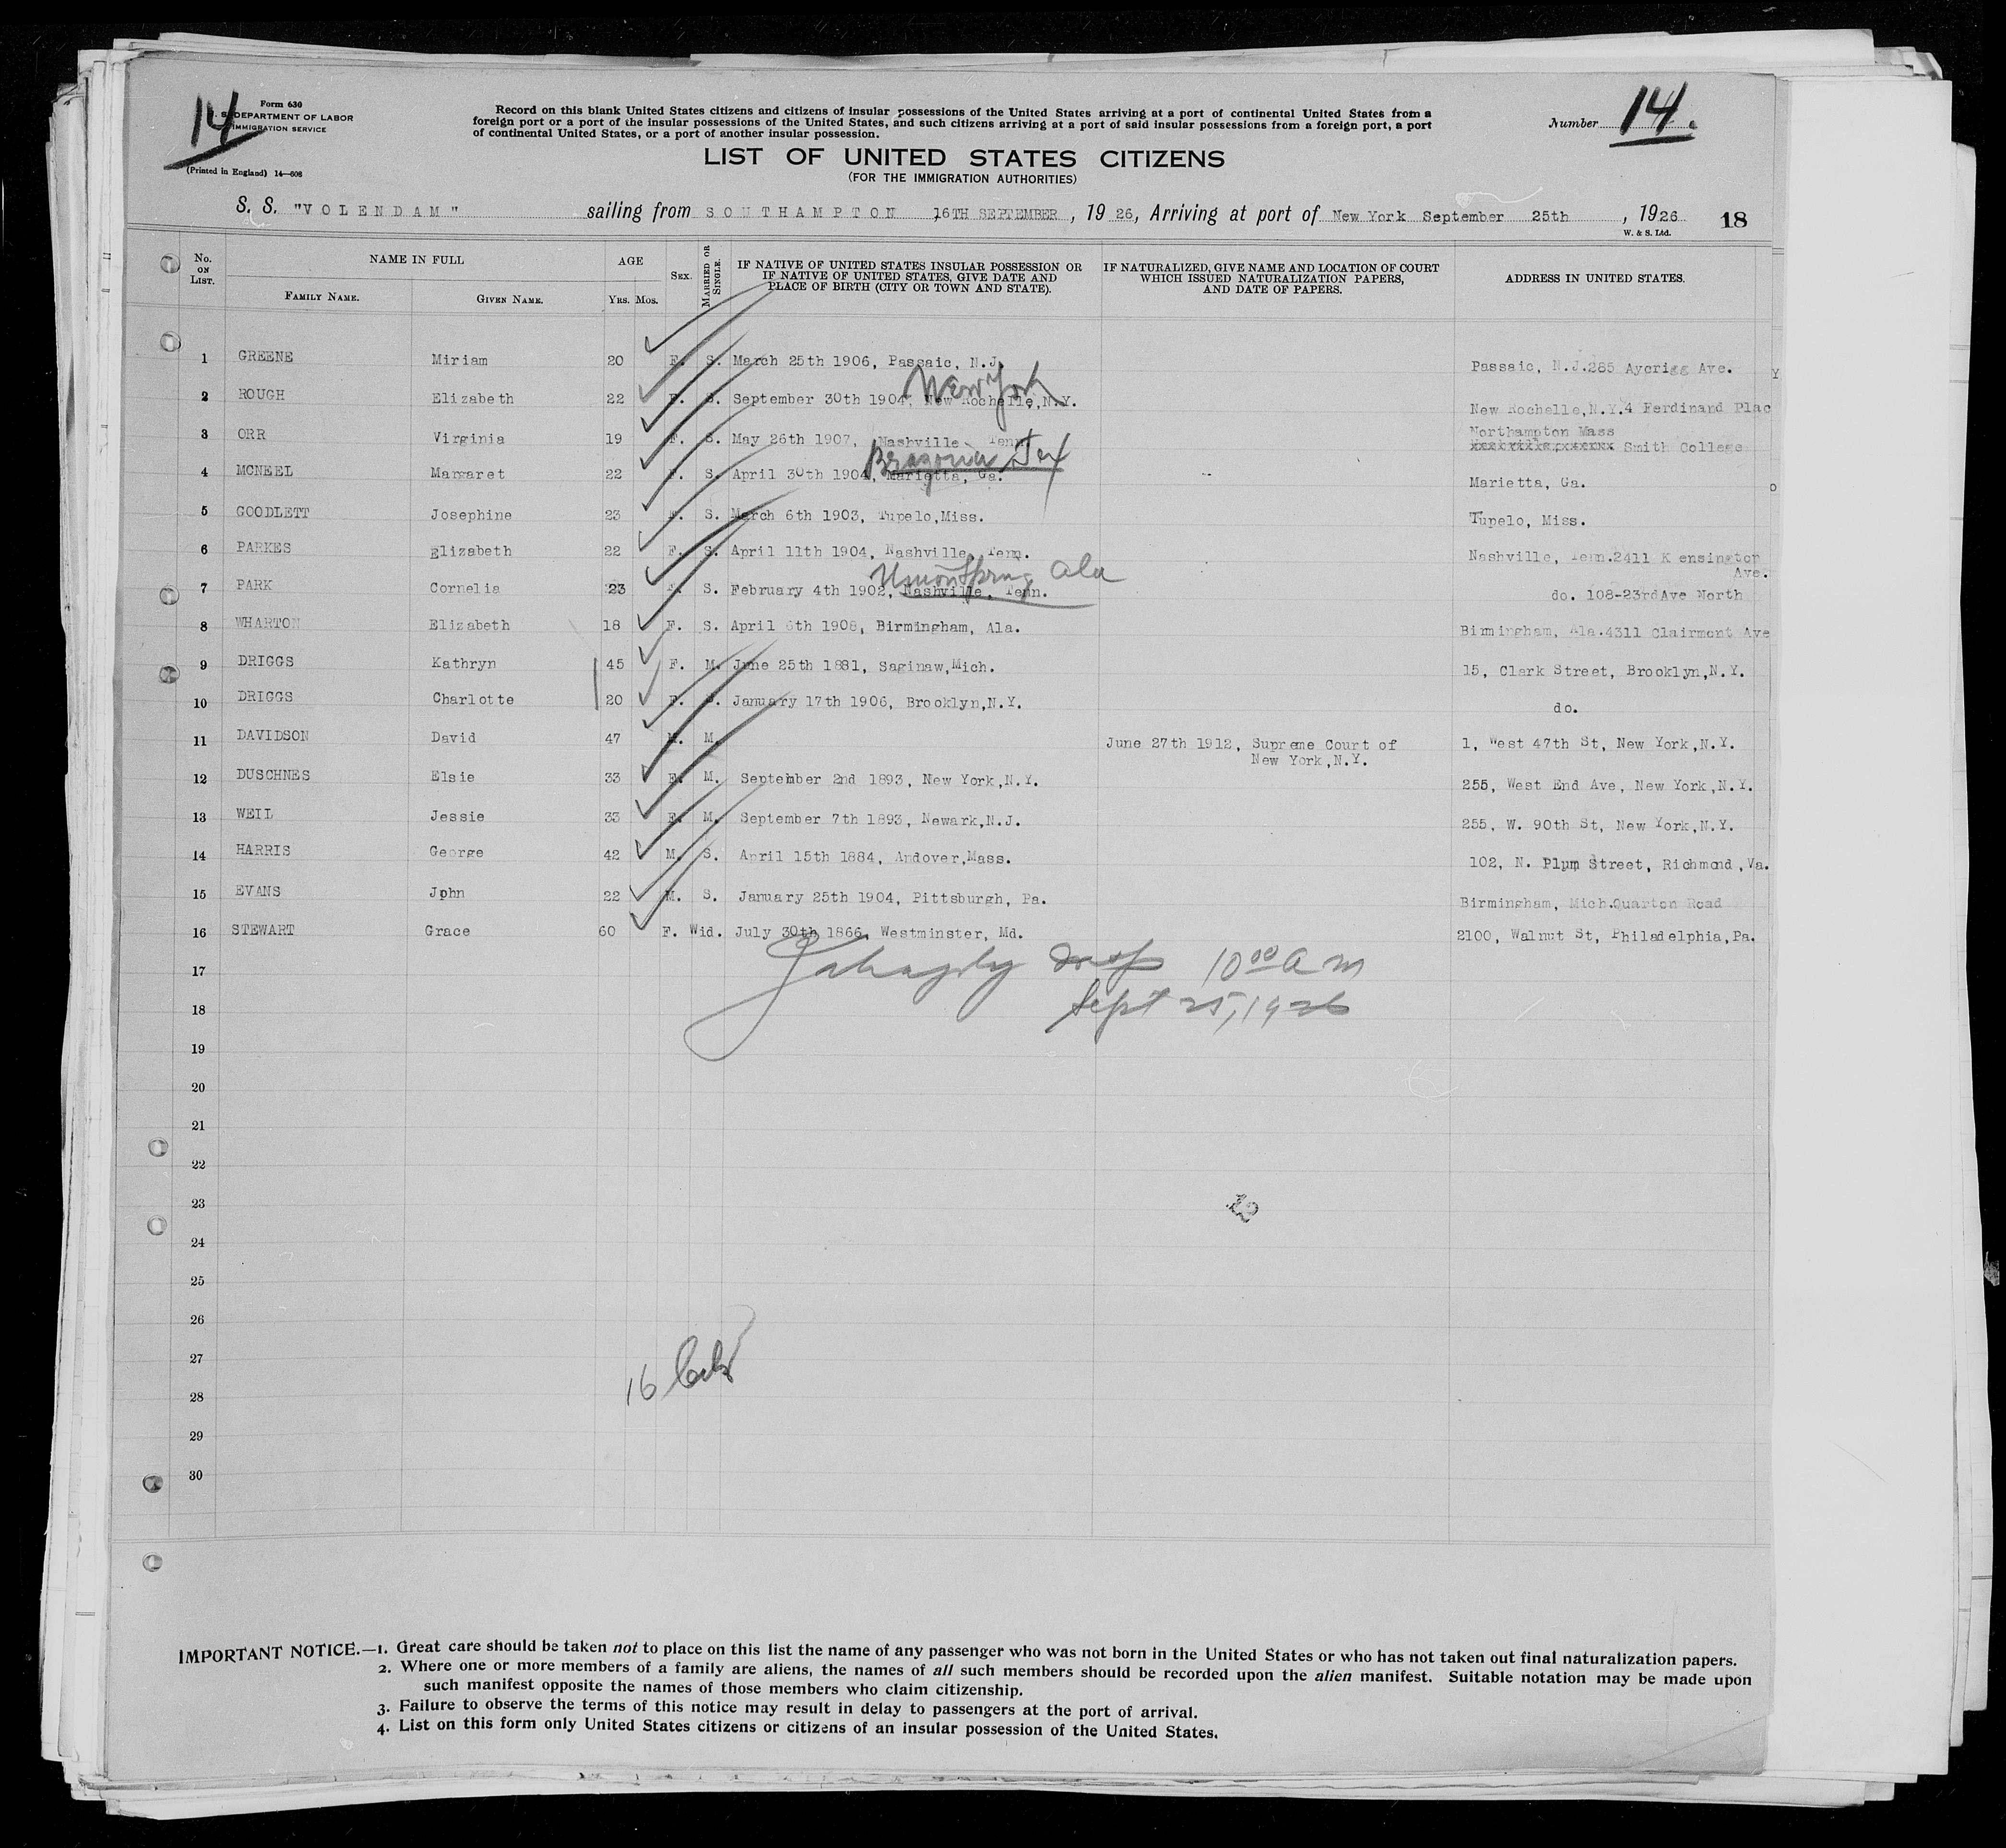 14
Form 630
U. S. DEPARTMENT OF LABOR
IMMIGRATION SERVICE
(Printed in England) 14—608
Record on this blank United States citizens and citizens of insular possessions of the United States arriving at a port of continental United States from a
foreign port or a port of the insular possessions of the United States, and such citizens arriving at a port of said insular possessions from a foreign port, a port
of continental United States, or a port of another insular possession.
Number 14.
LIST OF UNITED STATES CITIZENS
(FOR THE IMMIGRATION AUTHORITIES)
S. S. "VOLENDAM" sailing from SOUTHAMPTON 16TH SEPTEMBER, 1926, Arriving at port of New York September 25th, 1926 18
W. & S. Ltd.
No. ON LIST. NAME IN FULL AGE SEX. MARRIED OR SINGLE. IF NATIVE OF UNITED STATES INSULAR POSSESSION OR IF NATIVE OF UNITED STATES, GIVE DATE AND PLACE OF BIRTH (CITY OR TOWN AND STATE). IF NATURALIZED, GIVE NAME AND LOCATION OF COURT WHICH ISSUED NATURALIZATION PAPERS, AND DATE OF PAPERS. ADDRESS IN UNITED STATES.
FAMILY NAME. GIVEN NAME. YRS. MOS.
1 GREENE Miriam 20 F. S. March 25th 1906, Passaic, N.J. Passaic, N.J.285 Aycrigg Ave.
New York
2 ROUGH Elizabeth 22 F. S. September 30th 1904, New Rochelle,N.Y. New Rochelle,N.Y.4 Ferdinand Plac
3 ORR Virginia 19 F. S. May 26th 1907, Nashville Tenn. Northampton Mass
Smith College
Brazoria Tex
4 MCNEEL Margaret 22 F. S. April 30th 1904, Marietta, Ga. Marietta, Ga.
5 GOODLETT Josephine 23 F. S. March 6th 1903, Tupelo,Miss. Tupelo, Miss.
6 PARKES Elizabeth 22 F. S. April 11th 1904, Nashville, Tenn. Nashville, Tenn.2411 Kensington
Ave.
Union Spring Ala
7 PARK Cornelia 23 F. S. February 4th 1902, Nashville, Tenn. do. 108-23rdAve North
8 WHARTON Elizabeth 18 F. S. April 6th 1908, Birmingham, Ala. Birmingham, Ala.4311 Clairmont Ave
9 DRIGGS Kathryn 45 F. M. June 25th 1881, Saginaw,Mich. 15, Clark Street, Brooklyn,N.Y.
10 DRIGGS Charlotte 20 F. S. January 17th 1906, Brooklyn,N.Y. do.
11 DAVIDSON David 47 M. M. June 27th 1912, Supreme Court of 1, West 47th St, New York,N.Y.
New York,N.Y.
12 DUSCHNES Elsie 33 F. M. September 2nd 1893, New York,N.Y. 255, West End Ave, New York,N.Y.
13 WEIL Jessie 33 F. M. September 7th 1893, Newark,N.J. 255, W. 90th St, New York,N.Y.
14 HARRIS George 42 M. S. April 15th 1884, Andover,Mass. 102, N. Plum Street, Richmond,Va.
15 EVANS John 22 M. S. January 25th 1904, Pittsburgh, Pa. Birmingham, Mich.Quarton Road
16 STEWART Grace 60 F. Wid. July 30th 1866, Westminster, Md. 2100, Walnut St, Philadelphia,Pa.
17 10 00 A m
18 Sept 25, 1926
19
20
21
22
23
24
25
26
27
16
28
29
30
IMPORTANT NOTICE.—1. Great care should be taken not to place on this list the name of any passenger who was not born in the United States or who has not taken out final naturalization papers.
2. Where one or more members of a family are aliens, the names of all such members should be recorded upon the alien manifest. Suitable notation may be made upon
such manifest opposite the names of those members who claim citizenship.
3. Failure to observe the terms of this notice may result in delay to passengers at the port of arrival.
4. List on this form only United States citizens or citizens of an insular possession of the United States.